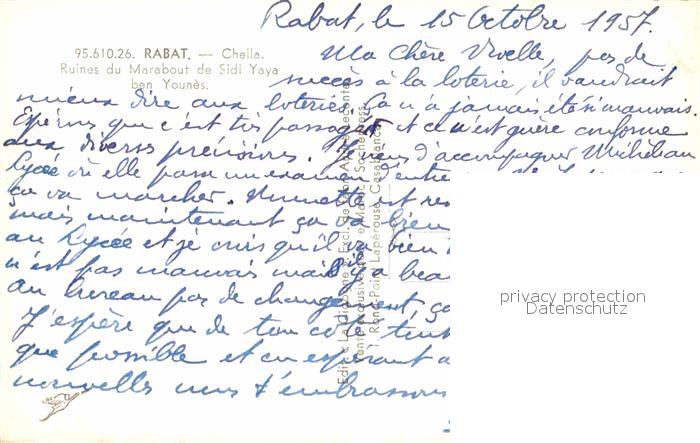 Rabat, le 15 Octobre 1957.
95.610.26. RABAT. — Chella.
Ruines du Marabout de Sidi Yaya
ben Younès.
Ma Chère Vovelle, pas de
succès à la loterie, il vaudrait
mieux dire aux loteries. Ça n'a jamais été si mauvais.
Espérons que c'est très passager et ce n'est guère conforme
aux diverses prévisions. Je viens d'accompagner
Lycée où elle passe un examen d'entrée
ça va marcher. est
mais maintenant ça va bien
au Lycée et je crois qu'il va bien
n'est pas mauvais mais il y a
Au bureau pas de changement, ça
J'espère que de ton côté tout
que possible et en espérant
nouvelles nous t'embrassons
Edit. « La Cigogne »
1, Rond-Point Lapérouse, Casablanca
privacy protection
Datenschutz